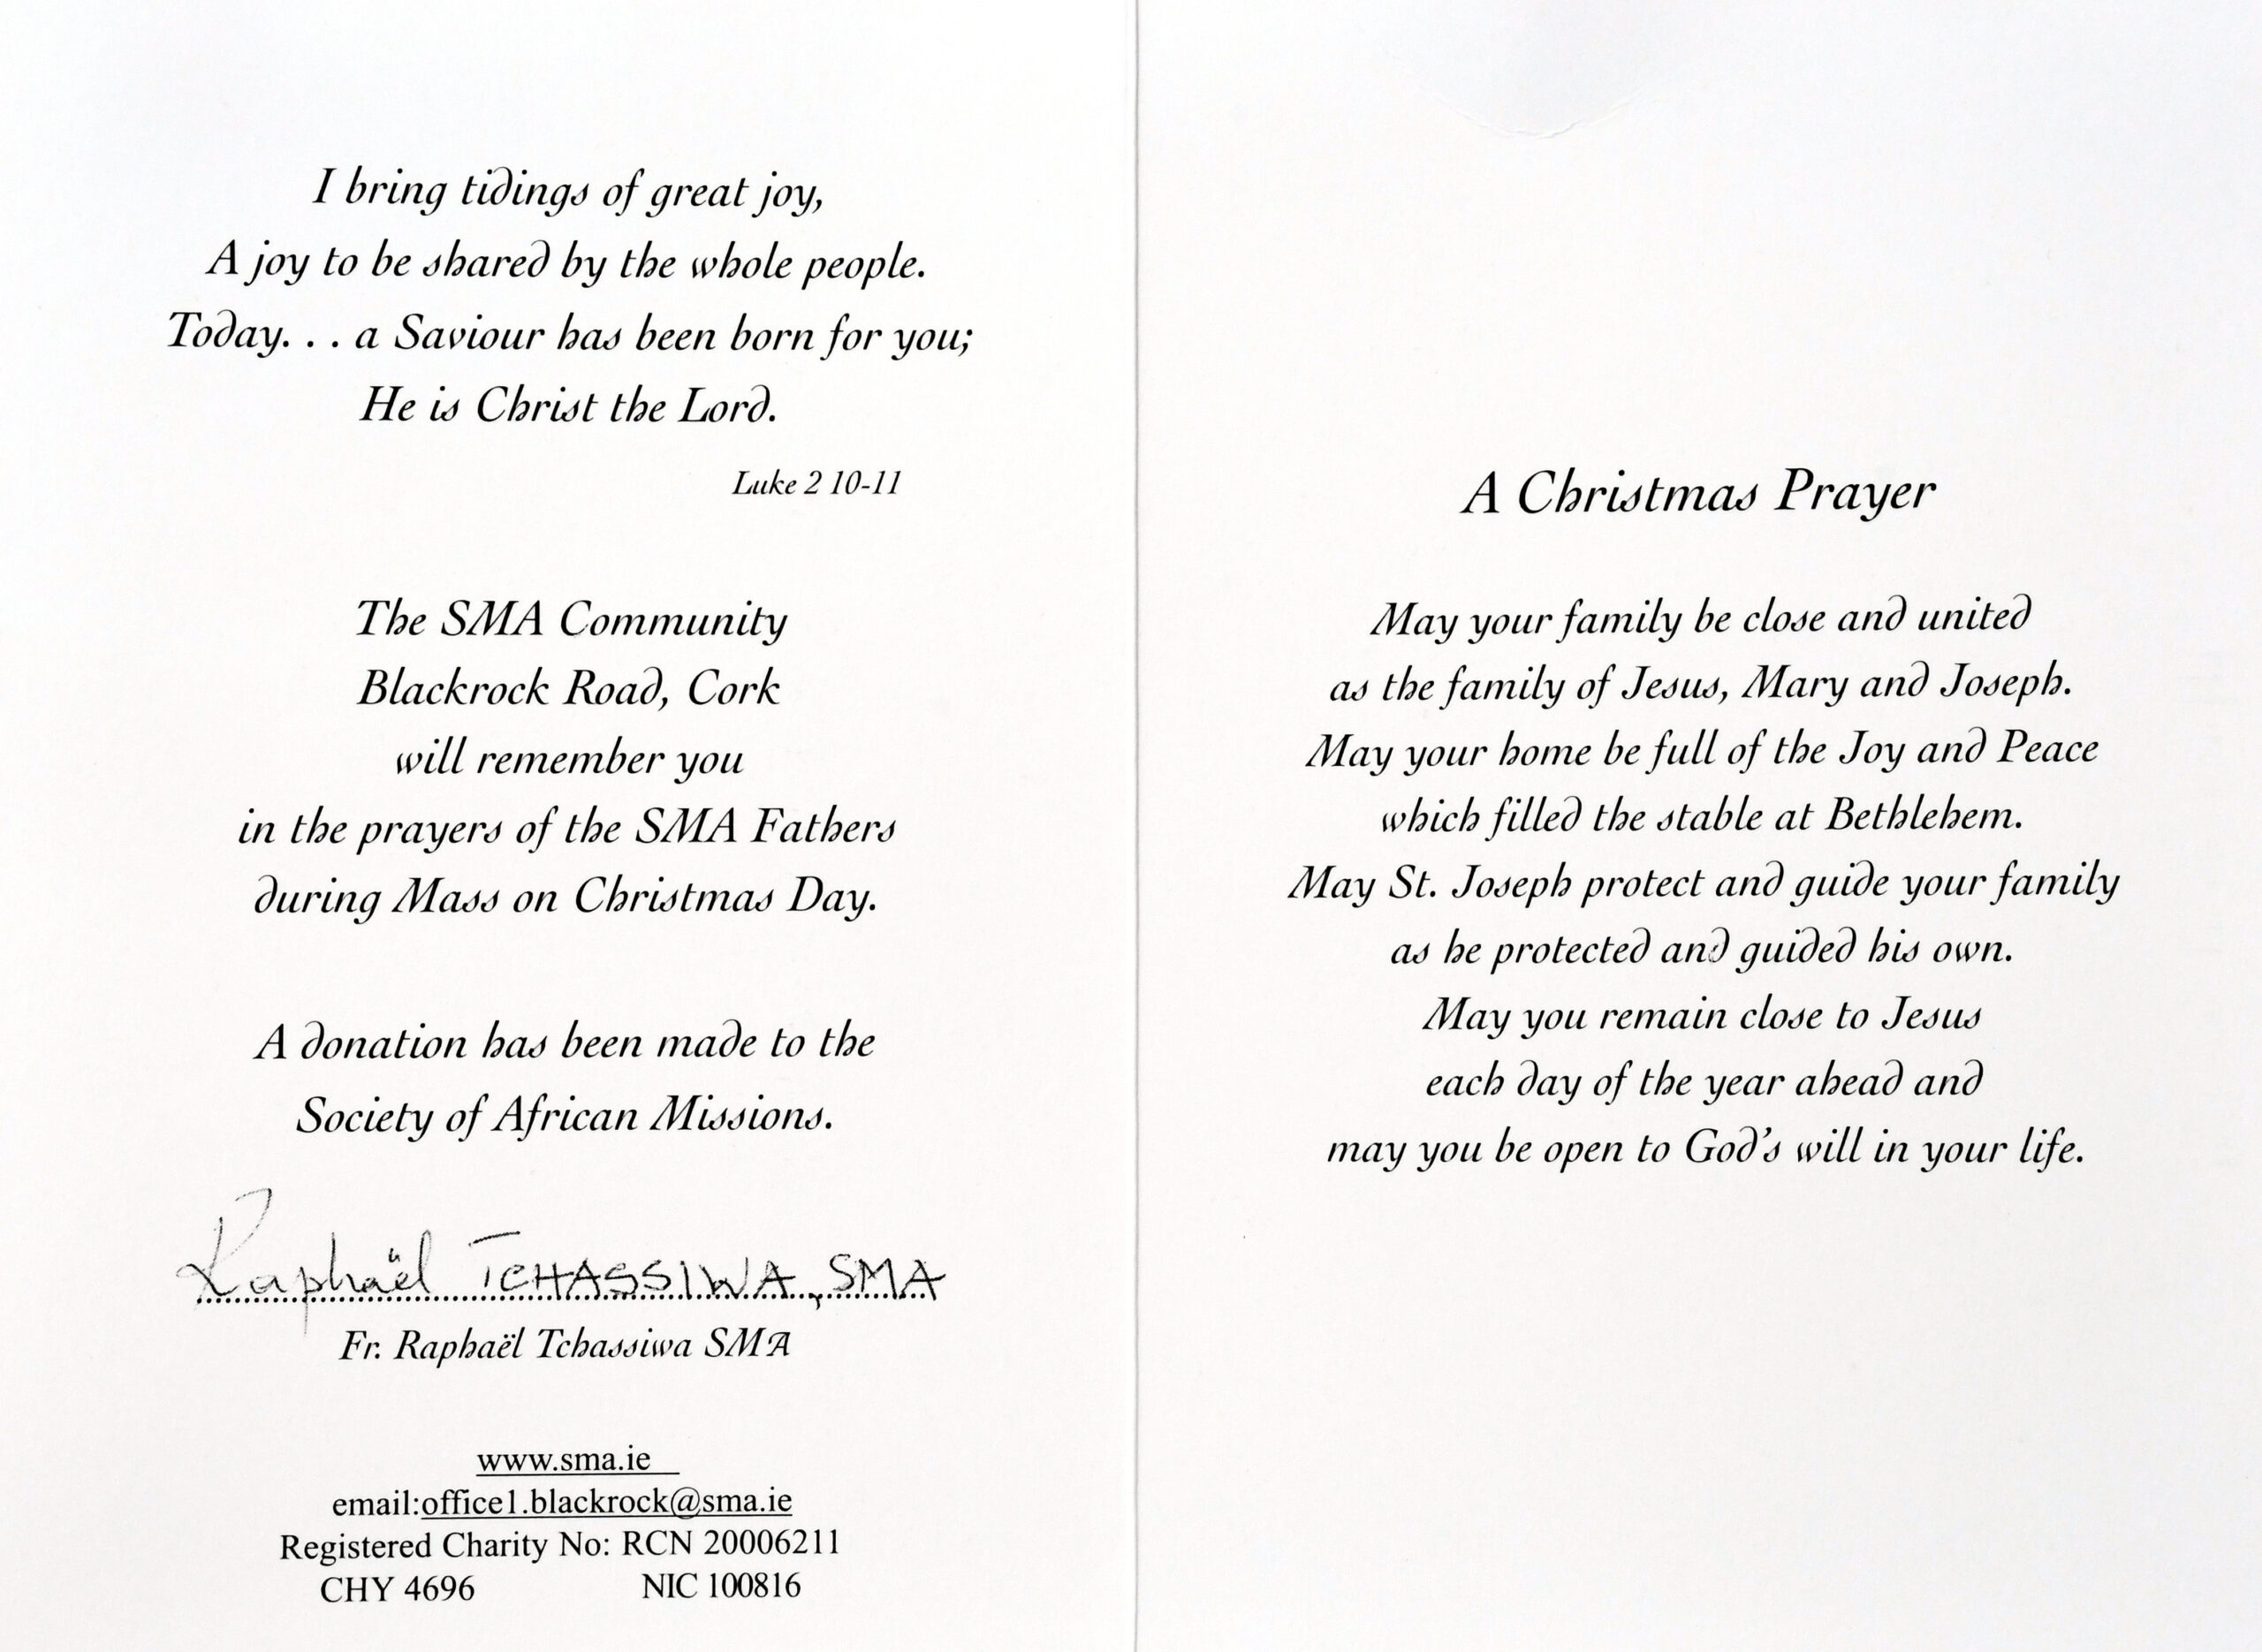 I bring tidings of great joy,
A joy to be shared by the whole people.
Today. . . a Saviour has been born for you;
He is Christ the Lord.
Luke 2 10-11
The SMA Community
Blackrock Road, Cork
will remember you
in the prayers of the SMA Fathers
during Mass on Christmas Day.
A donation has been made to the
Society of African Missions.
Raphaël TCHASSIWA, SMA
Fr. Raphaël Tchassiwa SMA
www.sma.ie
email:office1.blackrock@sma.ie
Registered Charity No: RCN 20006211
CHY 4696 NIC 100816
A Christmas Prayer
May your family be close and united
as the family of Jesus, Mary and Joseph.
May your home be full of the Joy and Peace
which filled the stable at Bethlehem.
May St. Joseph protect and guide your family
as he protected and guided his own.
May you remain close to Jesus
each day of the year ahead and
may you be open to God's will in your life.